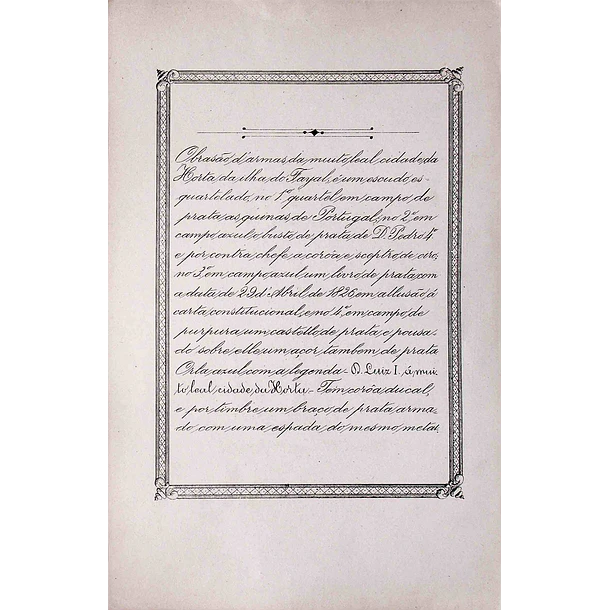 O brasão d'armas da muito leal cidade da
Horta da ilha do Fayal, é um escudo es-
quartelado, no 1º quartel em campo de
prata as quinas de Portugal, no 2º em
campo azul o busto de prata de D. Pedro 4º
e por contra chefe a corôa e sceptro de oiro,
no 3º em campo azul um livro de prata com
a data de 29 d'Abril de 1826 em allusão á
carta constitucional, e no 4º em campo de
purpura um castello de prata e pousa-
do sobre elle um açor tambem de prata
Orla azul com a legenda - D. Luiz I, á mui-
to leal cidade da Horta - Tem corôa ducal,
e por timbre um braço de prata arma-
do com uma espada do mesmo metal.